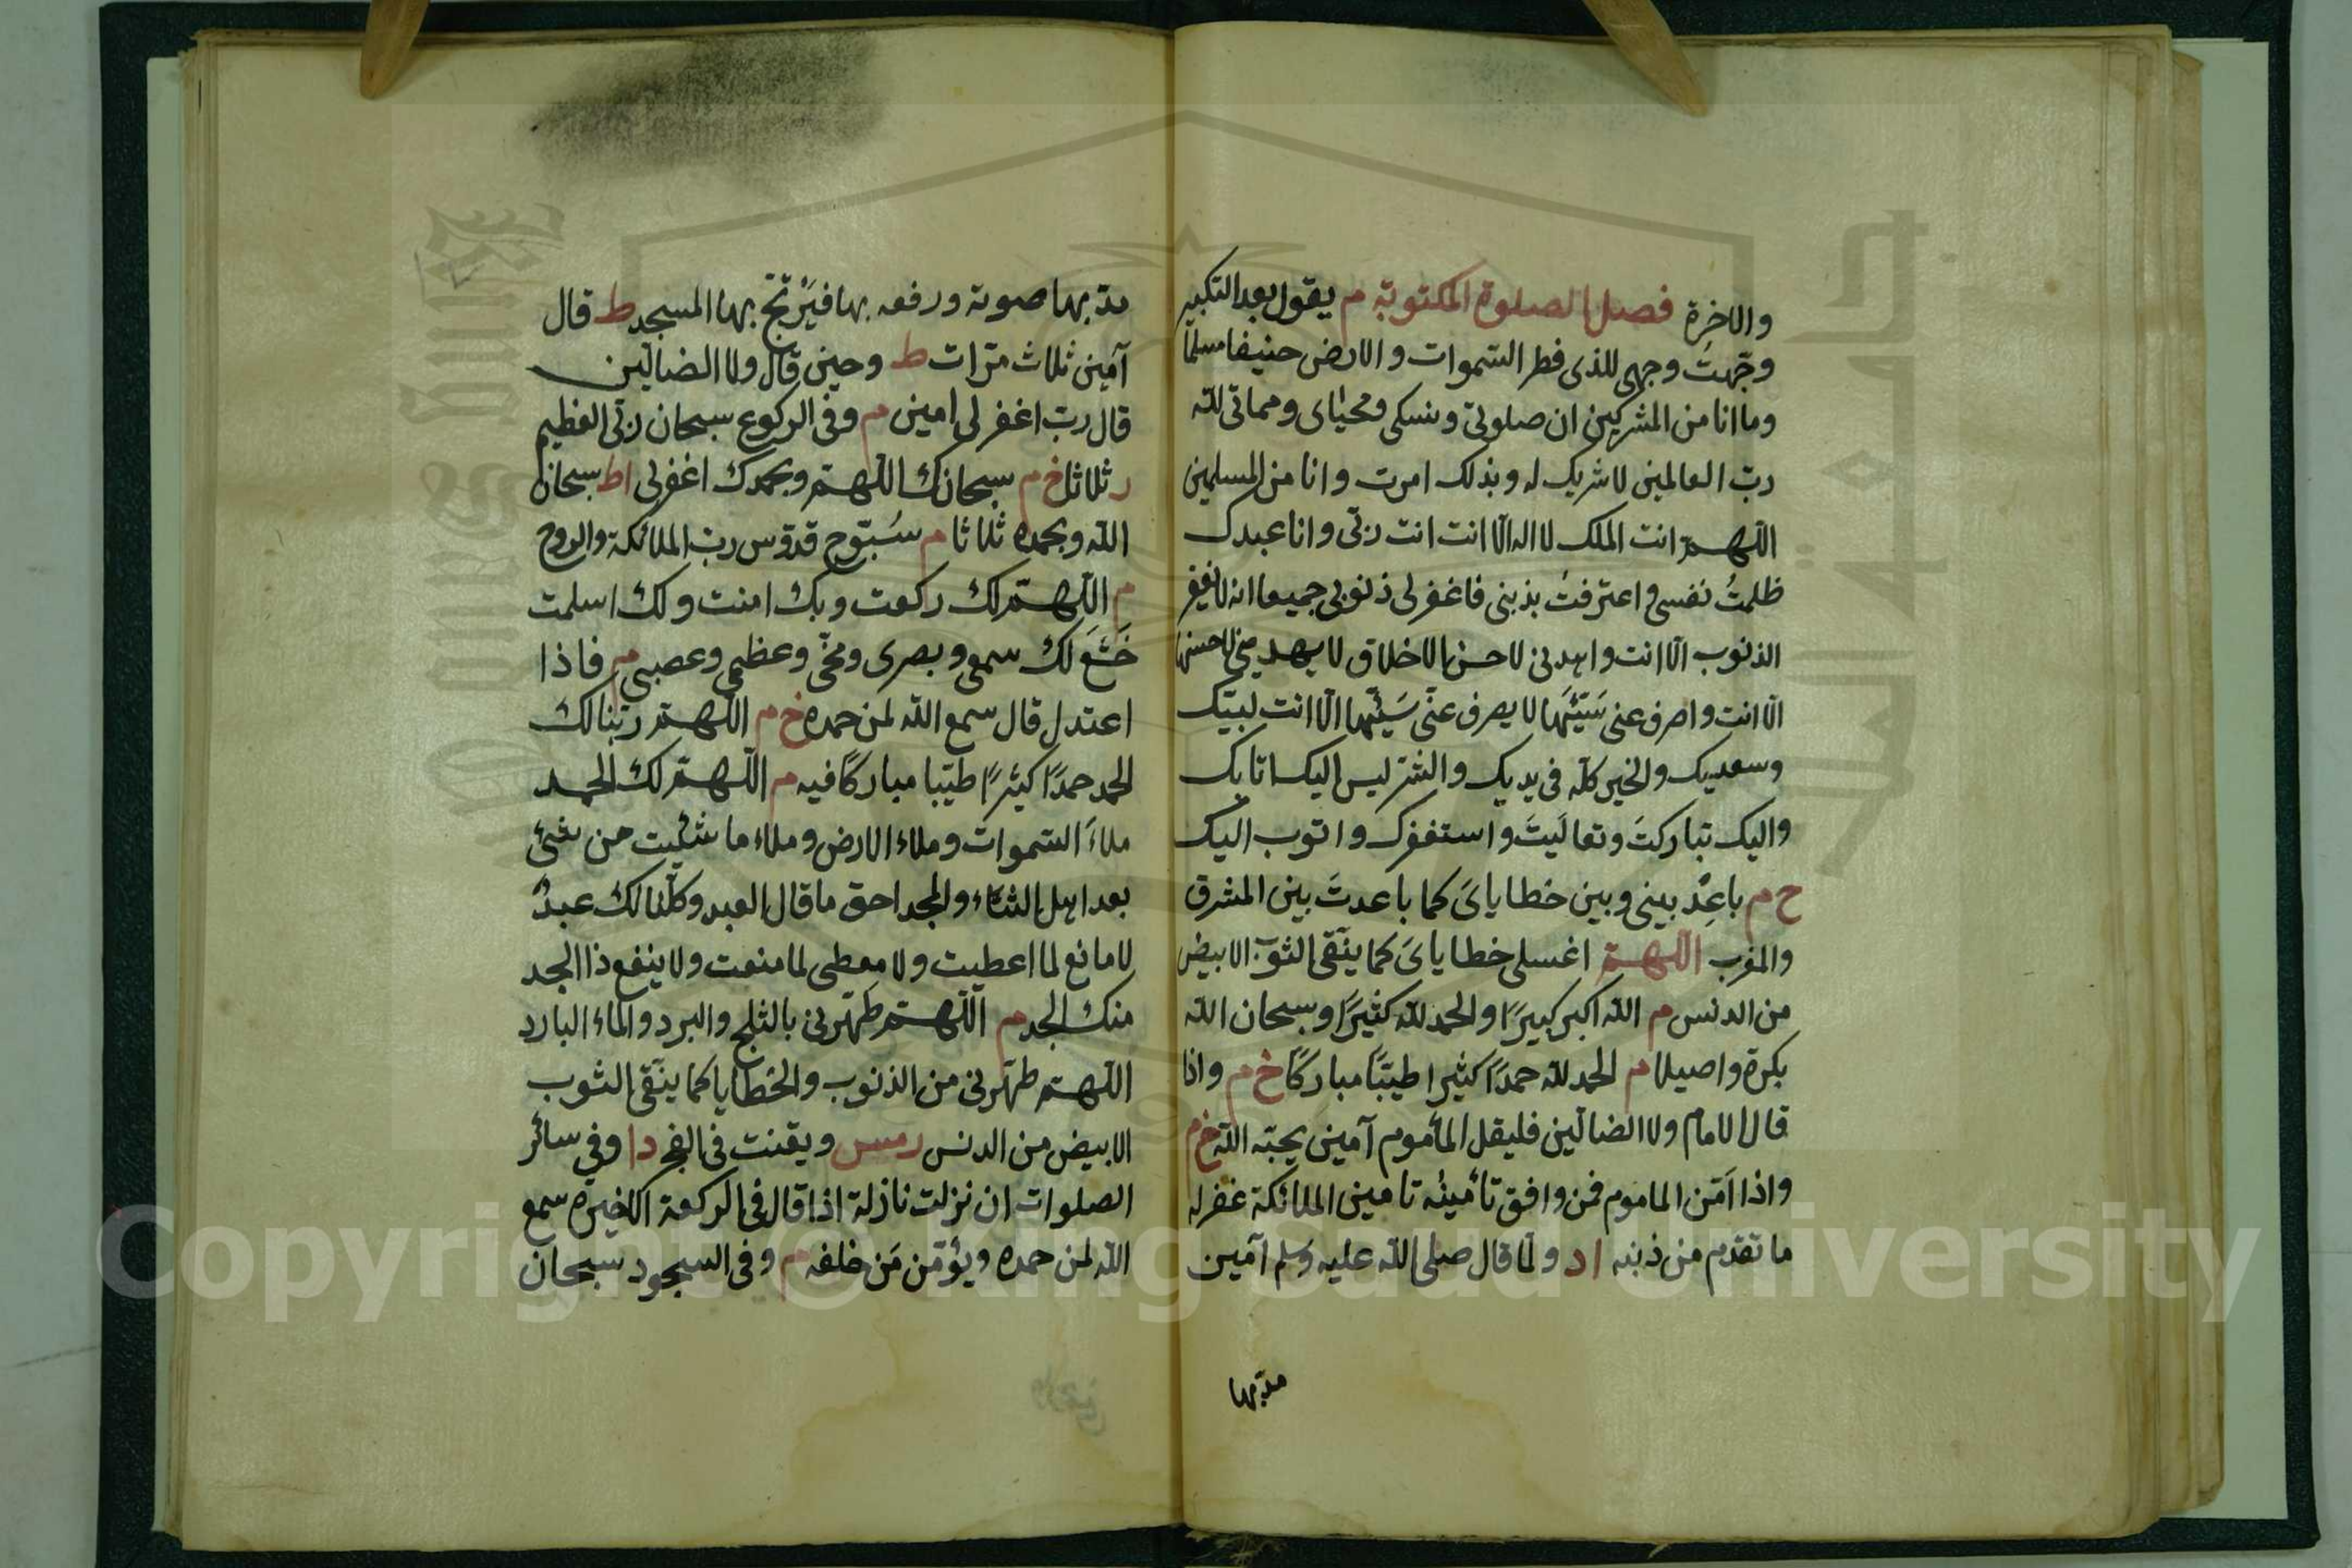 والاخرة فصل الصلوة المكتوبة م يقول بعد التكبير
وجّهتُ وجهي للذى فطر السّموات والارض حنيفا مسلمًا
وما انا من المشركين ان صلوتى ونسكى ومحياى ومماتى للّه
ربّ العالمين لا شريك له وبذلك امرت وانا من المسلمين
اللّهمّ انت الملك لا اله الّا انت انت ربّى وانا عبدك
ظلمتُ نفسى واعترفتُ بذنبى فاغفر لى ذنوبى جميعا انه لا يغفر
الذنوب الّا انت واهدنى لاحسن الاخلاق لا يهدينى لاحسنها
الّا انت واصرف عنى سَيّئَها لا يصرف عنّى سَيّئها الّا انت لبيّك
وسعديك والخير كلّه فى يديك والشرّ ليس اليك انا بك
واليك تباركتَ وتعاليتَ واستغفرك واتوب اليك
خ م باعِدْ بينى وبين خطاياىَ كما باعدتَ بين المشرق
والمغرب اللّهمّ اغسل خطاياىَ كما ينقّى الثوب الابيض
من الدنس م اللّه اكبر كبيرًا والحمد للّه كثيرًا وسبحان اللّه
بكرة واصيلا م الحمد للّه حمدًا كثيرا طيّبًا مباركًا خ م واذا
قال الامام ولا الضالّين فليقل المأموم آمين يحبّه اللّه خ م
واذا اَمّن الماموم فمن وافق تأمينُه تامين الملائكة غفر له
ما تقدّم من ذنبه ا د ولمّا قال صلى اللّه عليه وسلم آمين
مدّ بها
مدّ بها صوته ورفعه بها فيَرْتجّ بها المسجد ط قال
آمين ثلاث مرّات ط وحين قال ولا الضالّين
قال ربّ اغفر لى امين م وفى الركوع سبحان ربّى العظيم
ر ثلاثا خ م سبحانك اللّهمّ وبحمدك اغفر لى ا ط سبحان
اللّه وبحمده ثلاثا م سُبّوح قدّوس ربّ الملائكة والروح
م اللّهمّ لك ركعت وبك امنت ولك اسلمت
خَشَعَ لك سمعى وبصرى ومخّى وعظمى وعصبى م فاذا
اعتدل قال سمع اللّه لمن حمده خ م اللّهمّ ربّنا لك
الحمد حمدًا كثيرًا طيّبا مباركًا فيه م اللّهمّ لك الحمد
ملاءَ السّموات وملاء الارض وملاء ما شئيت من شئ
بعد اهل الثناء والمجد احق ما قال العبد وكلّنا لك عبدٌ
لا مانع لما اعطيت ولا معطى لما منعت ولا ينفع ذا الجد
منك الجد م اللّهمّ طهّرنى بالثلج والبرد والماء البارد
اللّهمّ طهّرنى من الذنوب والخطايا كما ينقّى الثوب
الابيض من الدنس ر مس ويقنت فى الفجر د ا وفى سائر
الصلوات ان نزلت نازلة اذا قال فى الركعة الاخيره سمع
اللّه لمن حمده ويؤمّن مَن خلفه م وفى السجود سبحان
Copyright © King Saud University